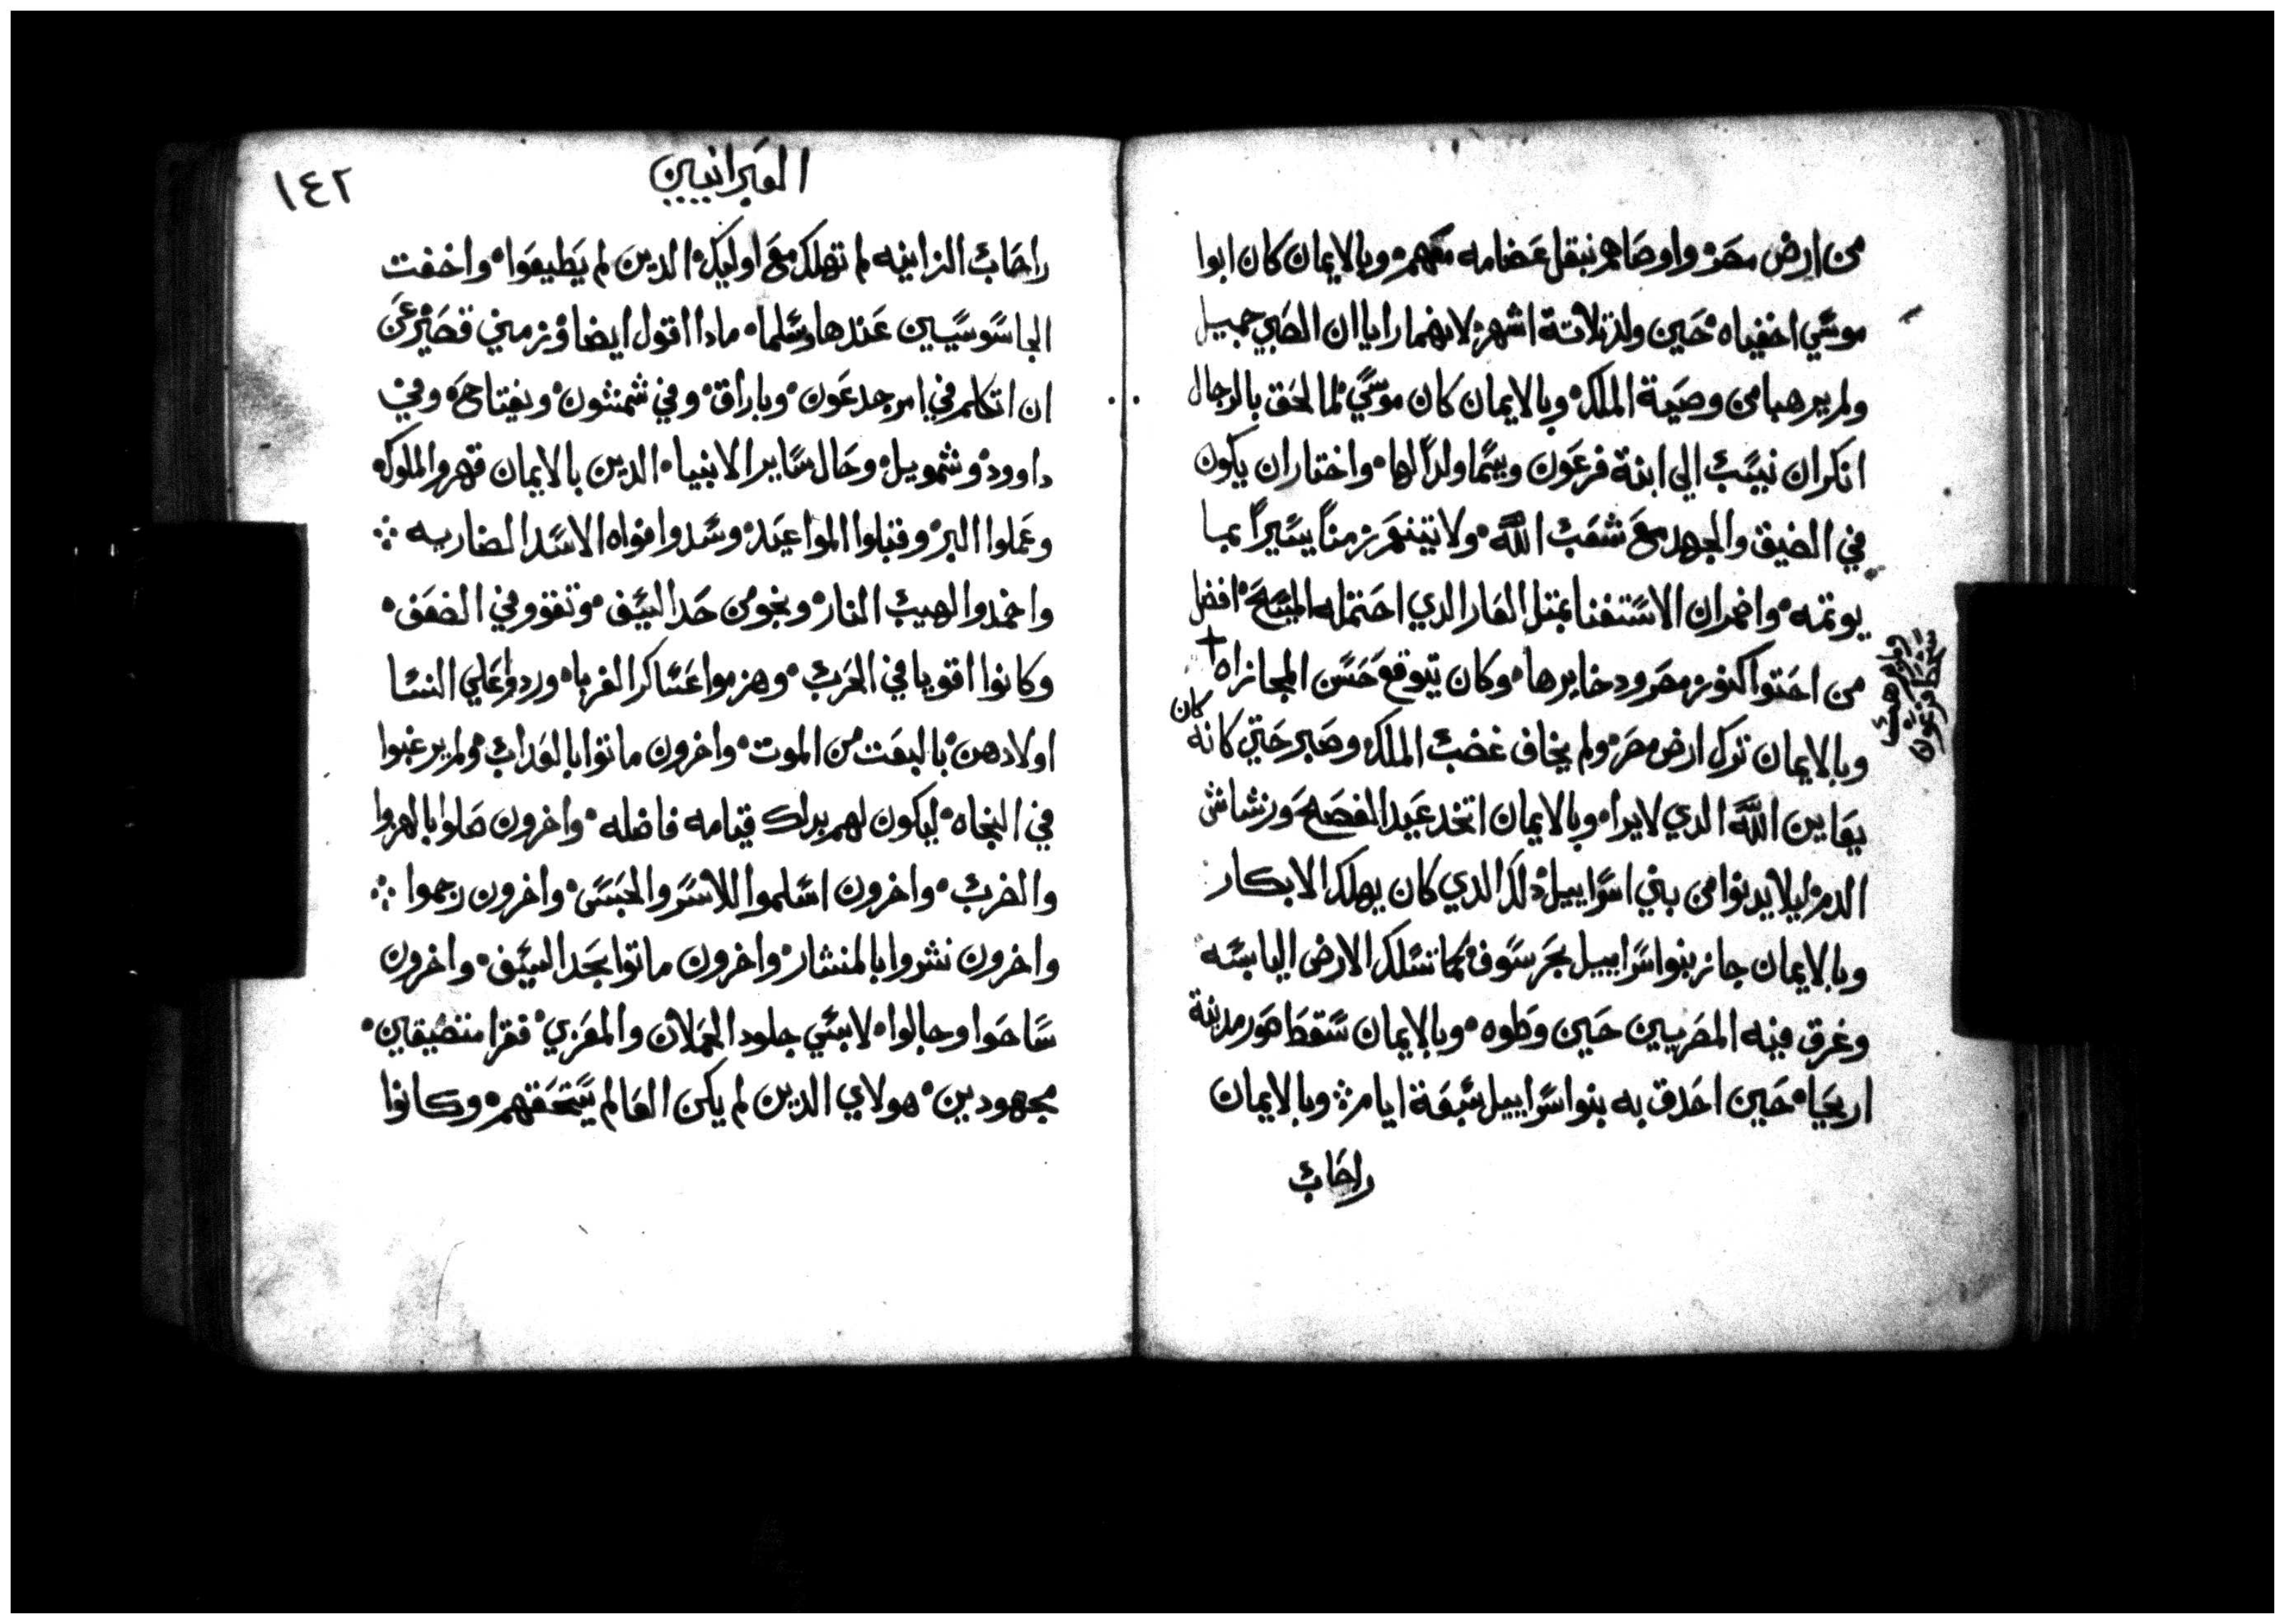 من ارض مصر واوصاهم بنقل عضامه معهم وبالايمان كان ابوا
موسي اخفياه حين ولد تلاتة اشهر لانهما رايا ان الصبي جميل
ولم يرهبا من وصية الملك وبالايمان كان موسي لما لحق بالرجال
انكر ان ينسب الي ابنة فرعون ويسما ولداً لها واختار ان يكون
في الضيق والجهد مع شعب الله ولا يتنعم زمناً يسيراً بما
يوتمه واضمر ان الاستغنا بمتل العار الدي احتمله المسيح افضل
من احتوا كنوز مصر ودخايرها وكان يتوقع حسن المجازاه
وبالايمان ترك ارض مصر ولم يخاف غضب الملك وصبر حتي كانه كان
يعاين الله الدي لا يرا وبالايمان اتخد عيد الفصح ورشاش
الدم ليلا يدنوا من بني اسراييل دلك الدي كان يهلك الابكار
وبالايمان جاز بنوا اسراييل بحر سوف كما تسلك الارض اليابسه
وغرق فيه المصريين حين وطوه وبالايمان سقط صور مدينة
اريحاه حين احدق به بنوا اسراييل سبعة ايام وبالايمان
راحاب
العبرانيين
١٤٢
راحاب الزانيه لم تهلك مع اوليك الدين لم يطيعوا واخفت
الجاسوسيين عندها وسلما مادا اقول ايضا وزمني قصير عن
ان اتكلم في امر جدعون وباراق وفي شمشون ويفتاحح وفي
داوود وشمويل وحال ساير الانبيا الدين بالايمان قهروا الملوك
وعملوا البر وقبلوا المواعيد وسدوا افواه الاسد الضاريه
واخمدوا لهيب النار ونجوا من حد السيف وتقووا في الضعف
وكانوا اقويا في الحرب وهزموا عساكر الغربا وردوا علي النسا
اولادهن بالبعت من الموت واخرون ماتوا بالعداب ولم يرغبوا
في النجاه ليكون لهم بدلك قيامه فاضله واخرون صلوا بالهزوا
والضرب واخرون اسلموا للاسر والحبس واخرون رجموا
واخرون نشروا بالمنشار واخرون ماتوا بحد السيف واخرون
ساحوا وجالوا لابسي جلود الحملان والمعزي فقرا متضيقين
مجهودين هولاي الدين لم يكن العالم يستحقهم وكانوا